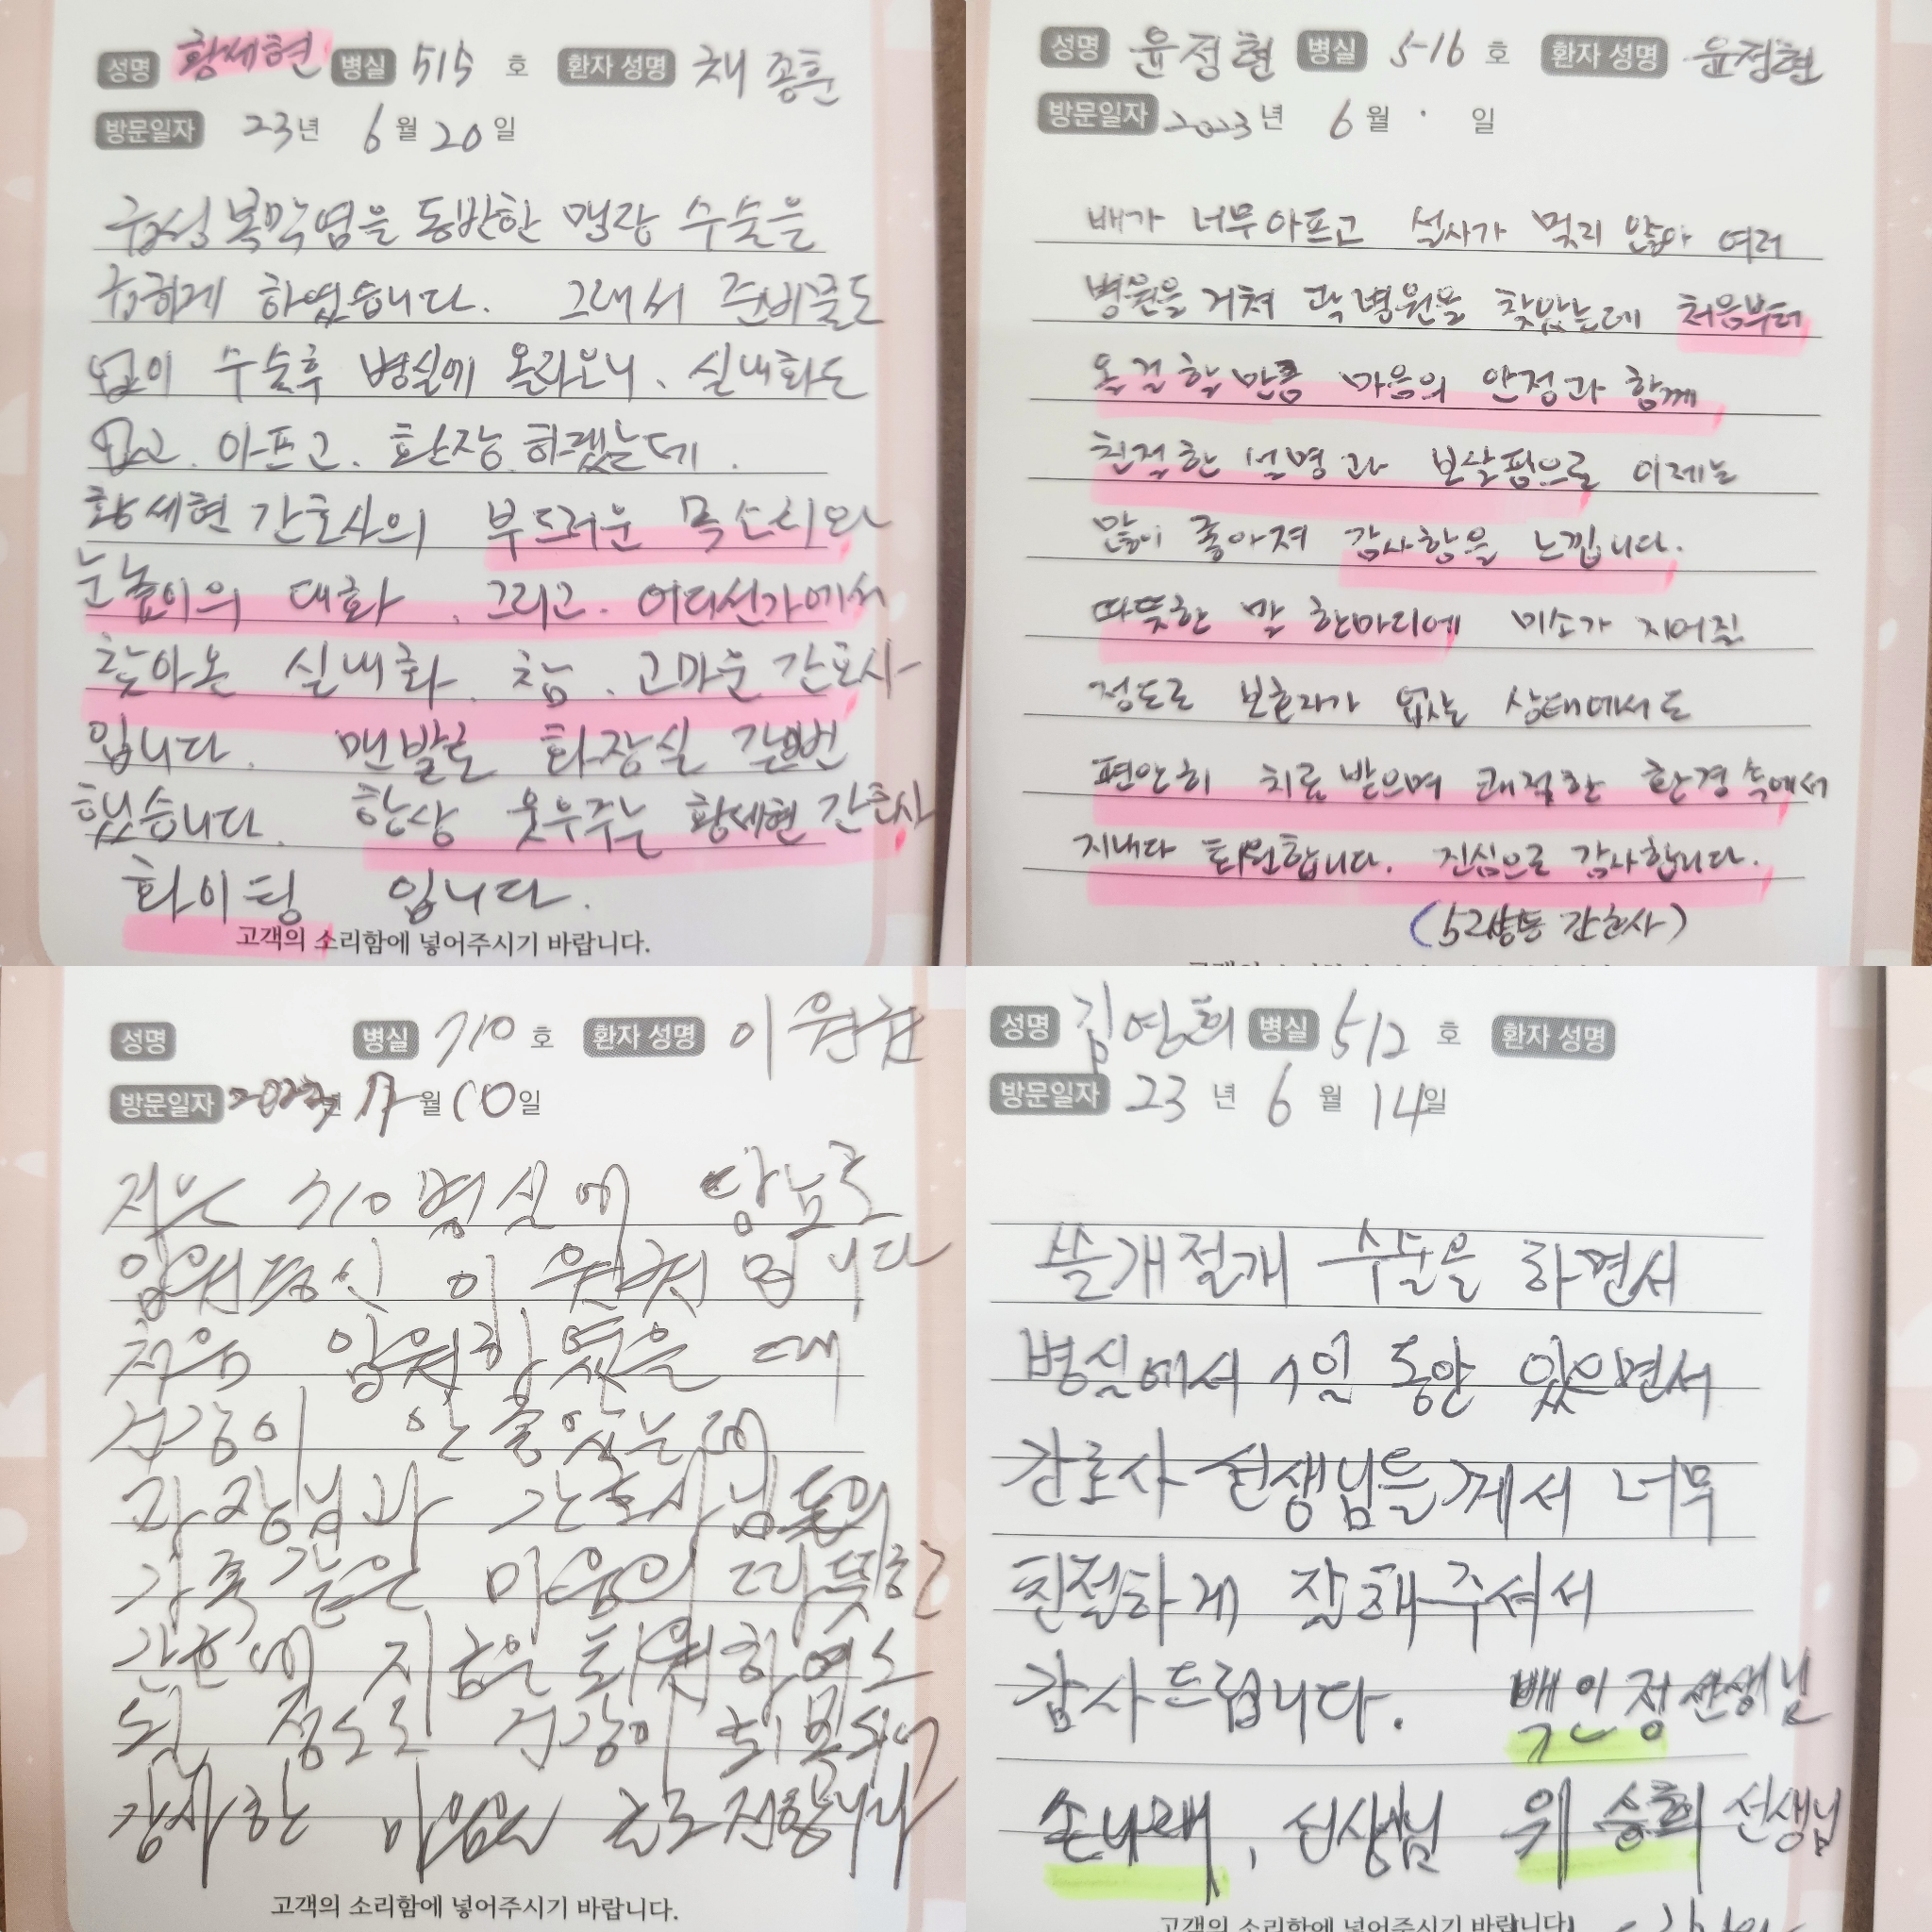 성명 황세현 병실 515 호 환자 성명 채종훈
방문일자 23년 6월 20일
급성복막염을 동반한 맹장 수술을
급하게 하였습니다. 그래서 준비물도
없이 수술후 병실에 올라오니. 실내화도
없고. 아프고. 환장 하겠는데.
황세현 간호사의 부드러운 목소리와
눈높이의 대화. 그리고. 어디선가에서
찾아온 실내화. 참. 고마운 간호사
입니다. 맨발로 화장실 갈뻔
했습니다. 항상 웃우주는 황세현 간호사
화이팅 입니다.
고객의 소리함에 넣어주시기 바랍니다.
성명 윤정현 병실 5-16 호 환자 성명 윤정현
방문일자 2023년 6월 · 일
배가 너무아프고 설사가 멎지 않아 여러
병원을 거쳐 곽병원을 찾았는데 처음부터
옷길할만큼 마음의 안정과 함께
친절한 설명과 보살핌으로 이제는
많이 좋아져 감사함을 느낍니다.
따뜻한 말 한마디에 미소가 지어질
정도로 보호자가 없는 상태에서도
편안히 치료 받으며 쾌적한 환경속에서
지내다 퇴원합니다. 진심으로 감사합니다.
(52병동 간호사)
성명 병실 710 호 환자 성명 이원
방문일자 월 10일
저는 710병실에
입원 이원 입니다
처음 입원하였을 때
건강이 안좋았는데
과장님과 간호사님들의
가족같은 마음의 따뜻한
간호에 지금은 퇴원하여도
될 정도로 건강이 회복되어
감사한 마음 전합니다
고객의 소리함에 넣어주시기 바랍니다.
성명 김영희 병실 512 호 환자 성명
방문일자 23년 6월 14일
쓸개절개 수술을 하면서
병실에서 일 동안 있으면서
간호사 선생님들께서 너무
친절하게 잘해주셔서
감사드립니다. 백인정선생님
손나래, 선생님 위승희 선생님
고객의 소리함에 넣어주시기 바랍니다.